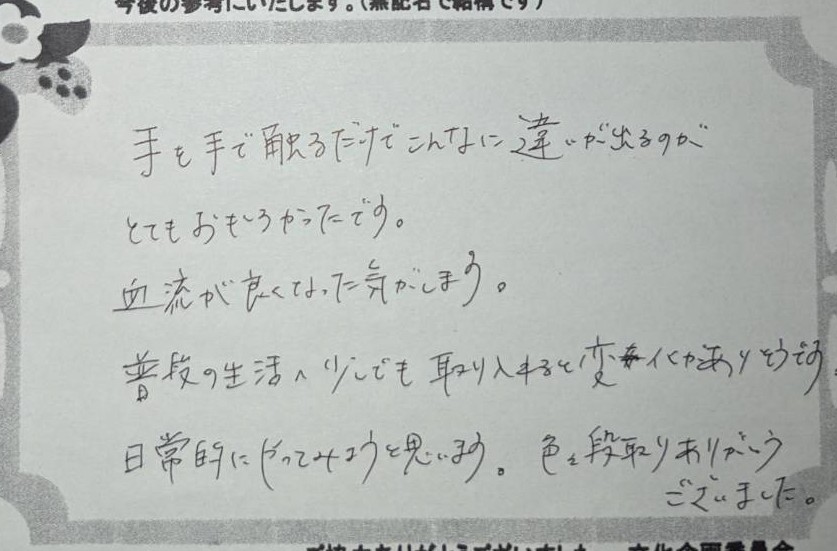 今後の参考にいたします。(無記名で結構です)
手を手で触るだけでこんなに違いが出るのが
とてもおもしろかったです。
血流が良くなった気がします。
普段の生活へ少しでも取り入れると変化がありそうです。
日常的にやってみようと思います。色々段取りありがとう
ございました。